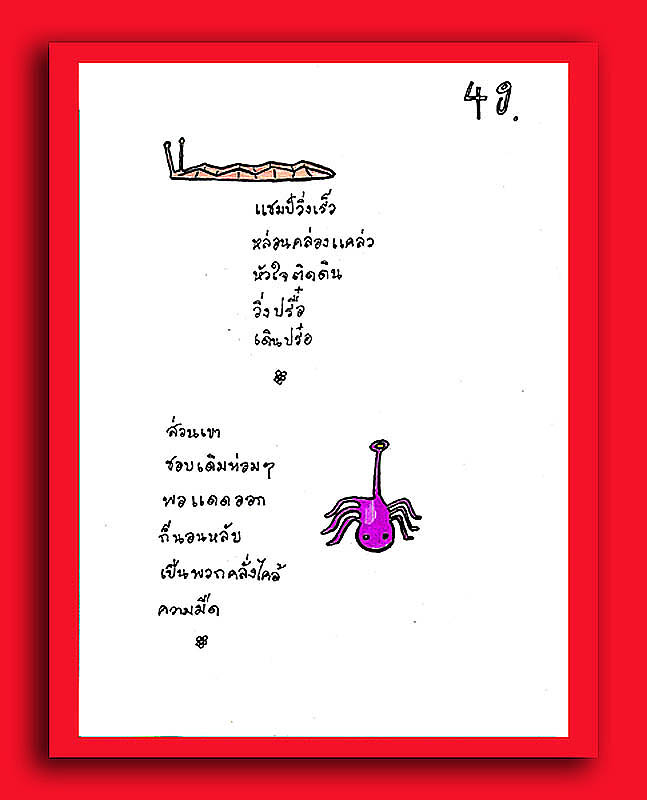 4 ข.
แชมป์วิ่งเร็ว
หล่อนคล่องแคล่ว
หัวใจติดดิน
วิ่งปรื๋อ
เดินปร๋อ
ส่วนเขา
ชอบเดิมท่อมๆ
พอแดดออก
ก็นอนหลับ
เป็นพวกคลั่งไคล้
ความมืด